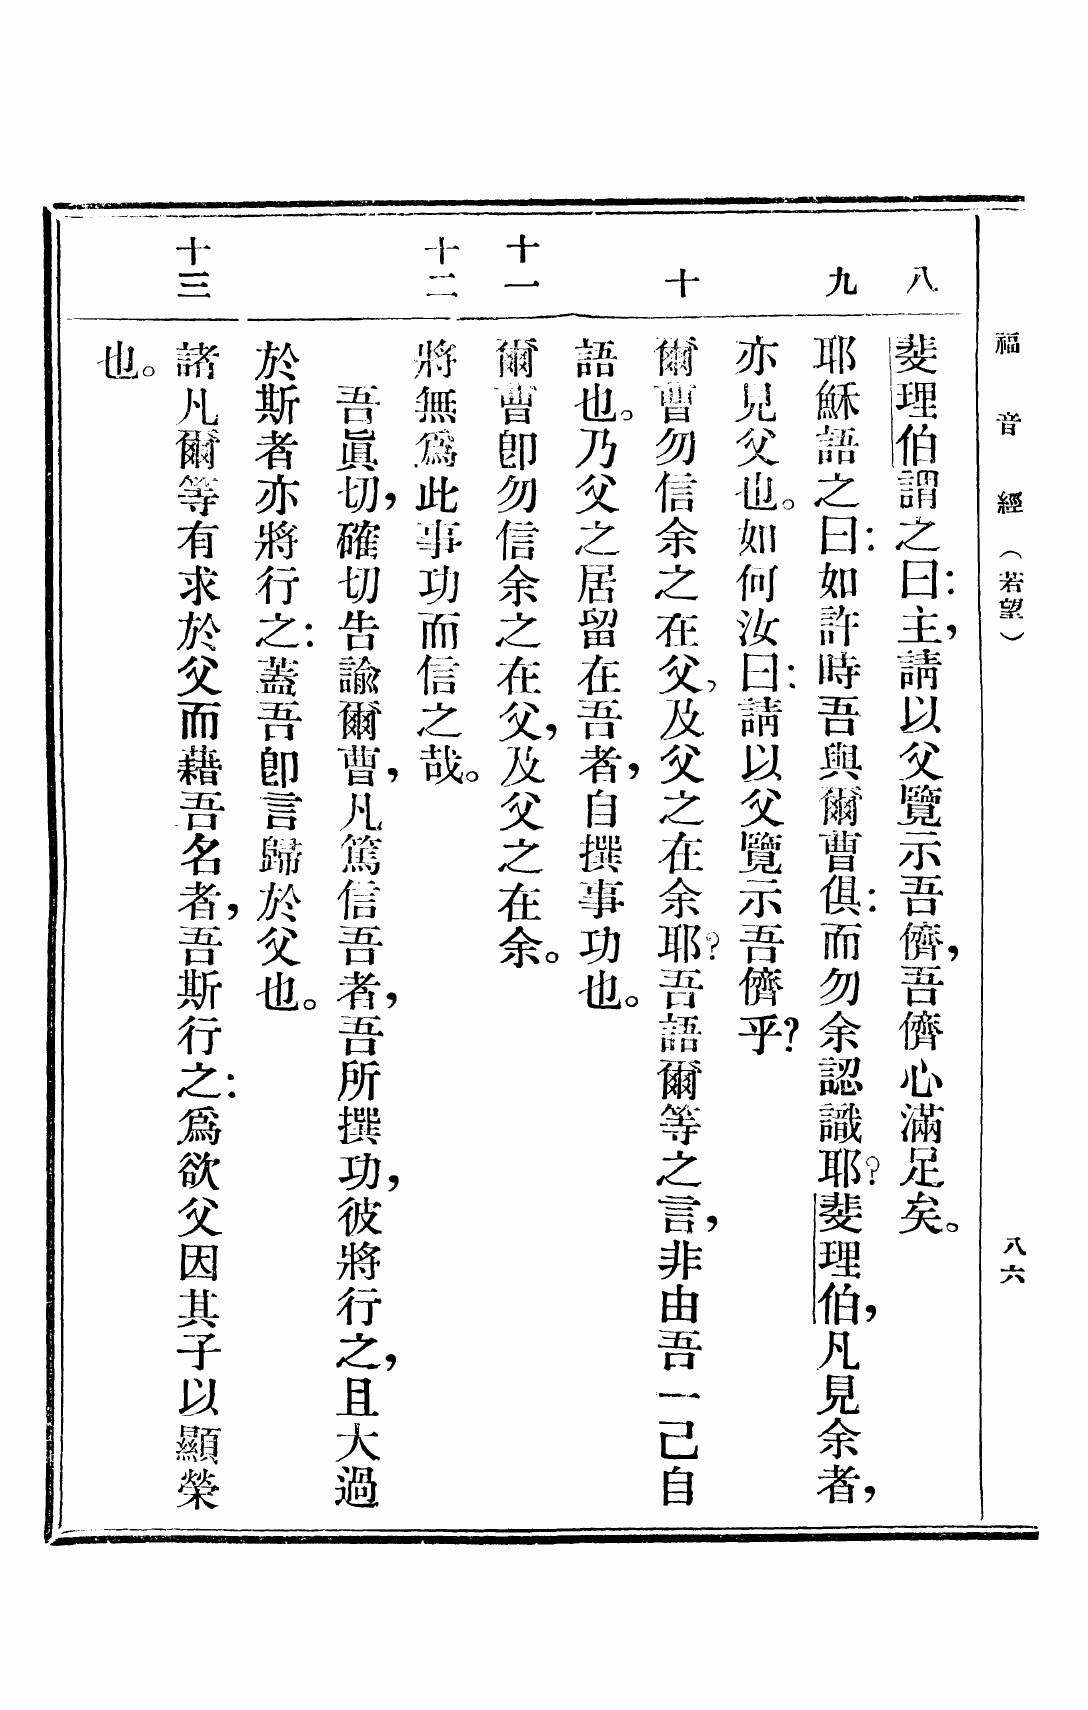 福音經（若望）
八六
八
斐理伯謂之曰：主，請以父覽示吾儕，吾儕心滿足矣。
九
耶穌語之曰：如許時吾與爾曹俱：而勿余認識耶？斐理伯，凡見余者，
亦見父也。如何汝曰：請以父覽示吾儕乎？
十
爾曹勿信余之在父，及父之在余耶？吾語爾等之言，非由吾一己自
語也。乃父之居留在吾者，自撰事功也。
十一
爾曹卽勿信余之在父，及父之在余。
十二
將無爲此事功而信之哉。
吾眞切，確切告諭爾曹，凡篤信吾者，吾所撰功，彼將行之，且大過
於斯者亦將行之：蓋吾卽言歸於父也。
十三
諸凡爾等有求於父而藉吾名者，吾斯行之：爲欲父因其子以顯榮
也。